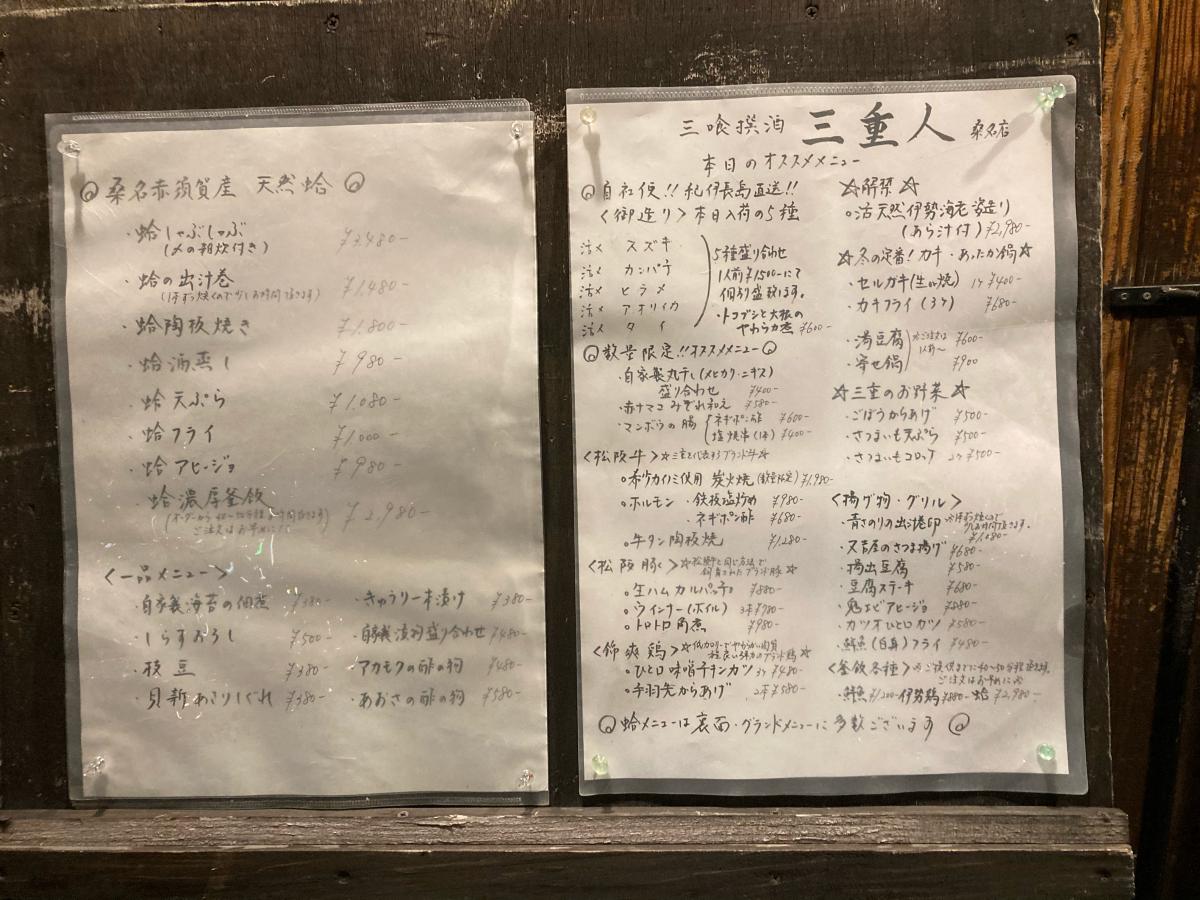 ◎桑名赤須賀産 天然蛤◎
・蛤しゃぶしゃぶ ¥3,480-
(〆の雑炊付き)
・蛤の出汁巻 ¥1,480-
・蛤陶板焼き ¥1,800-
・蛤酒蒸し ¥980-
・蛤天ぷら ¥1,080-
・蛤フライ ¥1,000-
・蛤アヒージョ ¥980-
・蛤濃厚釜飯 ¥2,980-
ご注文はお早めに
<一品メニュー>
・自家製海苔の佃煮 ¥380- ・きゅうり一本漬け ¥380-
・しらすおろし ¥500- ・自家製漬物盛り合わせ ¥480-
・枝豆 ¥380- ・アカモクの酢の物 ¥480-
・貝新あさりしぐれ ¥380- ・あおさの酢の物 ¥580-
三喰撰酒 三重人 桑名店
本日のオススメメニュー
◎自社便!!紀伊長島直送!!
<御造り>本日入荷の5種
活〆 スズキ
活〆 カンパチ
活〆 ヒラメ
活〆 アオリイカ
活〆 タイ
5種盛り合わせ
1人前¥1,500-にて
個別り盛致します。
・トコブシと大根の
やわらか煮 ¥600-
◎数量限定!!オススメメニュー◎
・自家製丸干し(メヒカリ・ニギス)
盛り合わせ ¥400-
・赤ナマコみぞれ和え ¥580-
・マンボウの腸 ネギポン酢 ¥600-
塩焼串(1本) ¥400-
<松阪牛>☆三重を代表するブランド牛☆
○希少カイノミ使用 炭火焼(数量限定) ¥1,980-
○ホルモン ・鉄板塩炒め ¥980-
・ネギポン酢 ¥680-
○牛タン陶板焼 ¥1,280-
<松阪豚>☆松阪牛と同じ方法で
飼育されたブランド豚☆
○生ハムカルパッチョ ¥880-
○ウインナー(ボイル) 3本¥780-
○トロトロ角煮 ¥980-
<錦爽鶏>☆低カロリーでやわらかい肉質
程良い弾力のブランド鶏☆
○ひと口味噌チキンカツ 3ケ¥480-
○手羽先からあげ 2本¥580-
☆解禁☆
○活天然伊勢海老姿造り
(あら汁付) ¥2,980-
☆冬の定番!カキ・あったか鍋☆
・セルガキ(生or焼) 1ケ¥400-
・カキフライ(3ケ) ¥680-
・湯豆腐 ¥600-
・寄せ鍋 ¥900
※ご注文は
1人前〜
☆三重のお野菜☆
・ごぼうからあげ ¥500-
・さつまいも天ぷら ¥500-
・さつまいもコロッケ 2ケ¥500-
<揚げ物・グリル>
・青さのりの出汁巻卵 ¥1,080-
・又吉屋のさつま揚げ ¥680-
・揚出豆腐 ¥580-
・豆腐ステーキ ¥680-
・鬼えびアヒージョ ¥880-
・カツオひと口カツ ¥580-
・鮮魚(白身)フライ ¥480-
<釜飯各種>※ご提供までに40〜50分程頂きます。
ご注文はお早めに※
・鮮魚¥1,200- 伊勢鶏¥880- 蛤¥2,980-
◎蛤メニューは裏面・グランドメニューに多数ございます◎